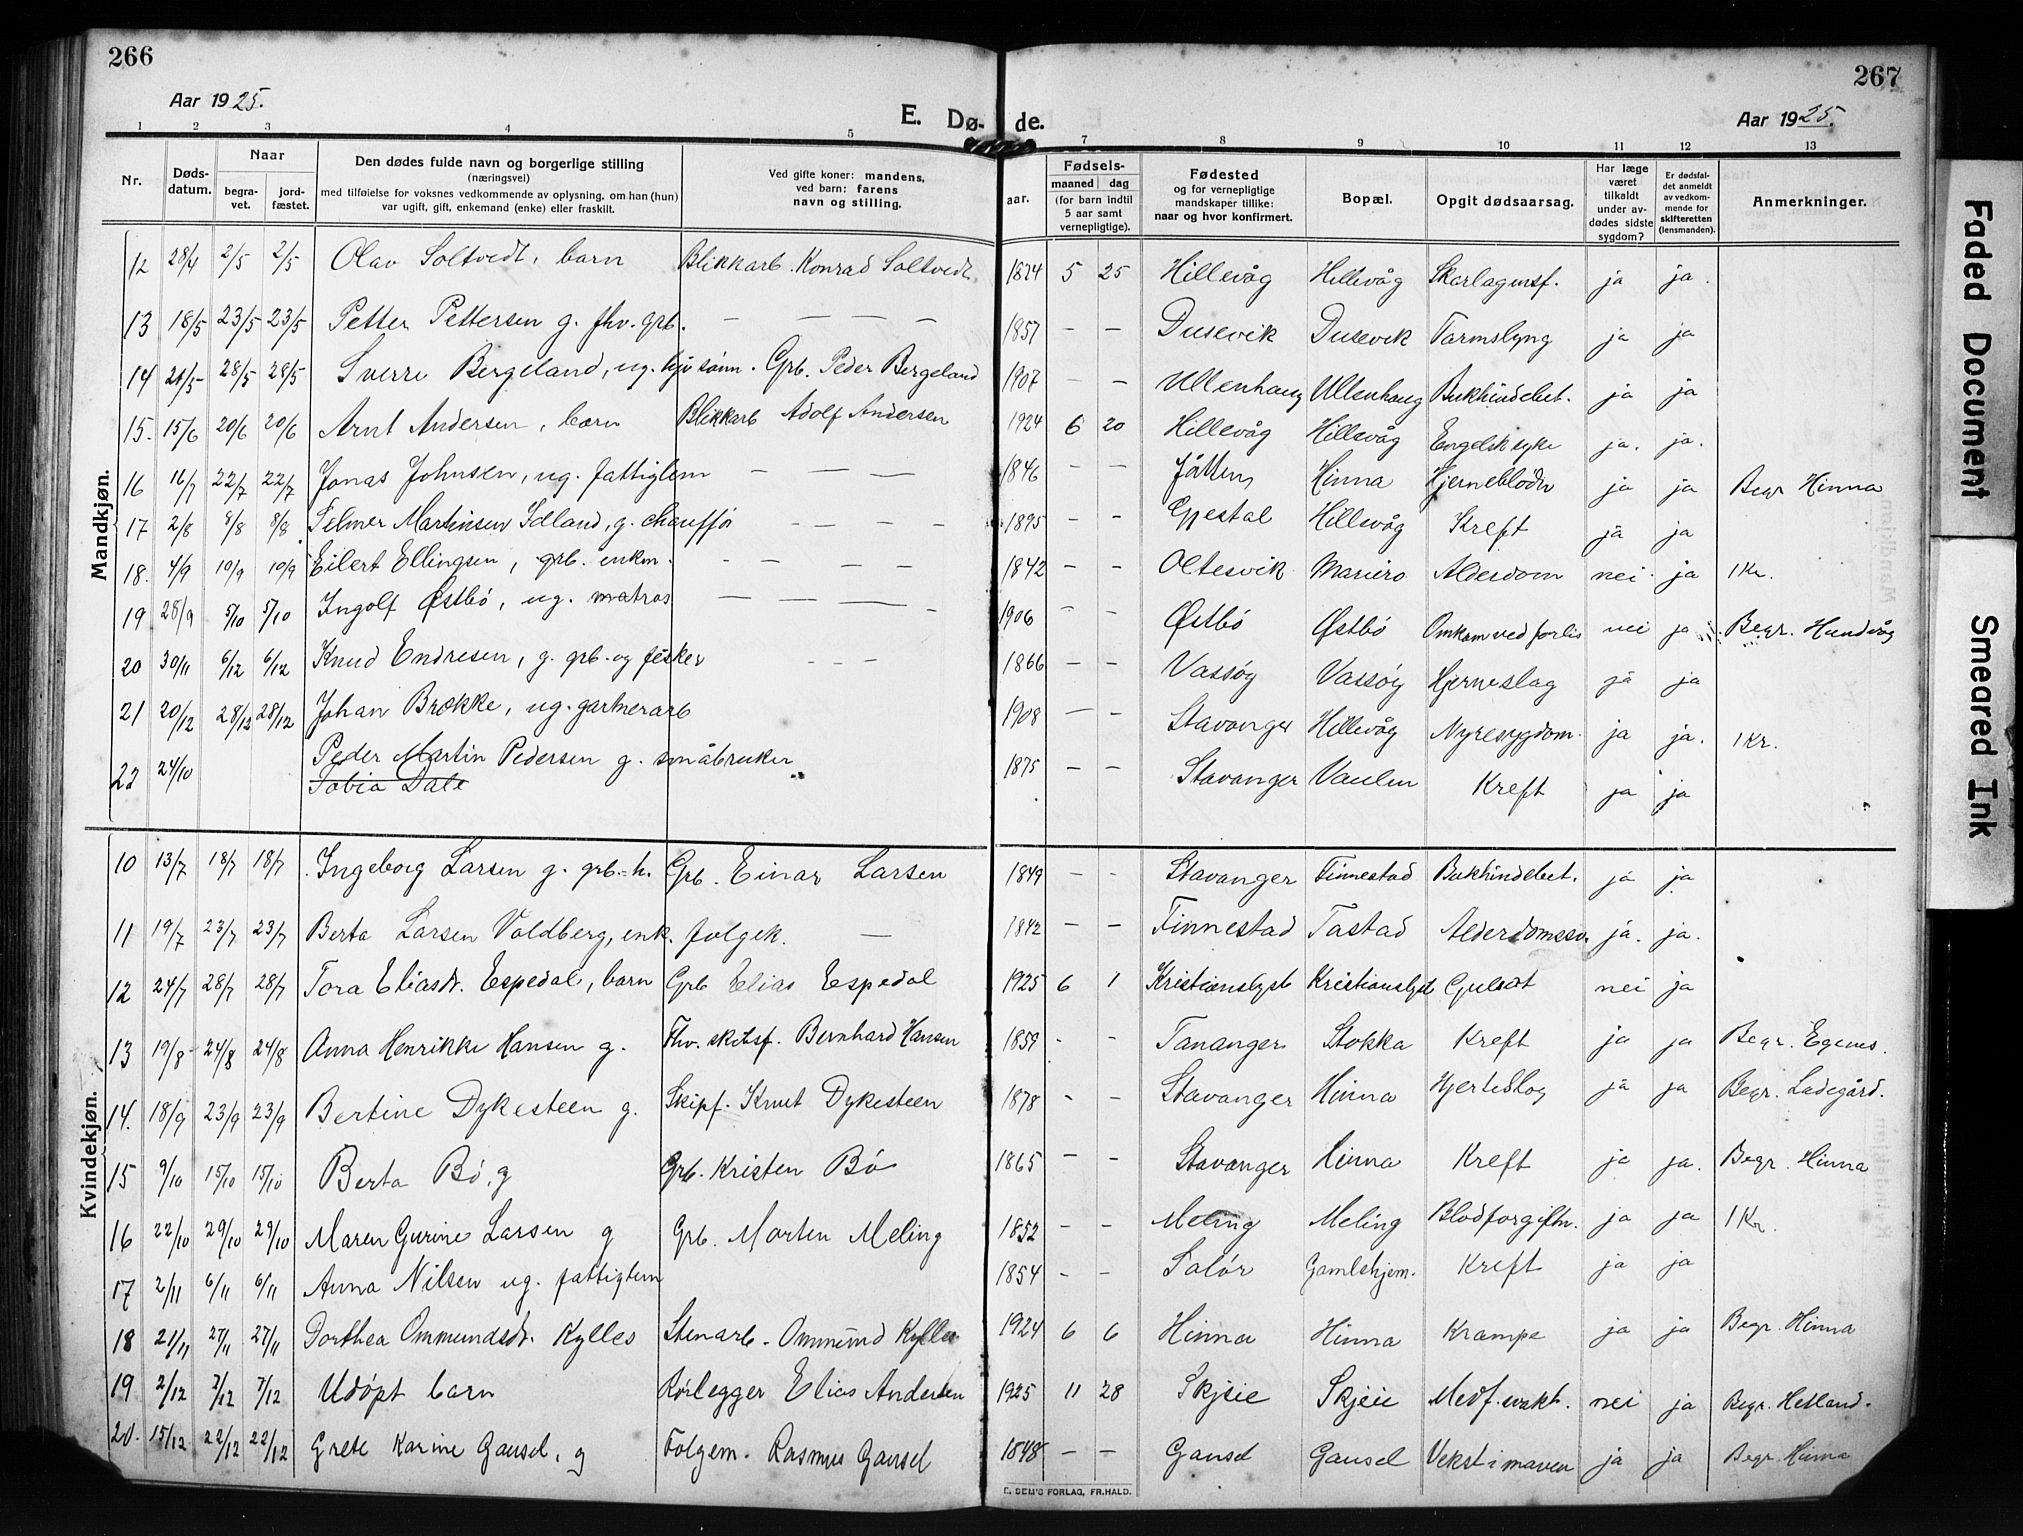 266
267
Aar 1925.
E. Dø- de.
Aar 1925.
1 2 3 4 5 7 8 9 10 11 12 13
Nr.
Døds-
datum.
Naar
begra-
vet.
jord-
fæstet.
Den dødes fulde navn og borgerlige stilling
(næringsvei)
med tilføielse for voksnes vedkommende av oplysning, om han (hun)
var ugift, gift, enkemand (enke) eller fraskilt.
Ved gifte koner: mandens,
ved barn: farens
navn og stilling.
Fødsels-
aar.
maaned dag
(for barn indtil
5 aar samt
vernepligtige).
Fødested
og for vernepligtige
mandskaper tillike:
naar og hvor konfirmert.
Bopæl.
Opgit dødsaarsag.
Har læge
været
tilkaldt
under av-
dødes sidste
sygdom?
Er dødsfal-
det anmeldt
av vedkom-
mende for
skifteretten
(lensmanden).
Anmerkninger.
Mandkjøn.
12 28/4 2/5 2/5 Olav Soltvedt, barn Blikkarb. Konrad Soltvedt 1824 5 25 Hillevåg Hillevåg Skarlagensf. ja ja.
13 18/5 23/5 23/5 Petter Pettersen g. fhv. grb. — — — — 1857 — — Dusevik Dusevik Tarmslyng ja ja
14 21/5 28/5 28/5 Sverre Bergeland, ug. hjv sønn. Grb. Peder Bergeland 1907 — — Ullenhaug Ullenhaug Bukhindebet. ja ja
15. 15/6 20/6 20/6 Arnt Andersen, barn Blikkarb Adolf Andersen 1924 6 20 Hillevåg Hillevåg Engelsk syke ja. ja.
16 16/7 22/7 22/7 Jonas Johnsen, ug. fattiglem — — — 1846 — — Jåtten Hinna Hjerneblødn ja ja Begr Hinna
17 2/8 8/8 8/8 Selmer Martinsen Idland, g. chauffør — — — 1895 — — Gjestal Hillevåg Kreft ja ja
18. 4/9 10/9 10/9 Eilert Ellingsen, grb. enkm. — — — — 1842 — — Oltesvik Mariero Alderdom nei ja 1 Kr.
19 28/9 5/10 5/10 Ingolf Østbø, ug. matros — — — — 1906 — — Østbø Østbø Omkom ved forlis nei ja Begr. Hundvåg
20 30/11 6/12 6/12 Knud Endresen, g. grb. og fisker — — — 1866 — — Vassøy Vassøy Hjerneslag ja ja
21 20/12 28/12 28/12 Johan Brække, ug. gartnerarb 1908 — — Stavanger Hillevåg Nyresygdom. ja ja. 1 Kr.
22 24/10 Peder Martin Pedersen g. småbruker 1875 — — Stavanger Vaulen Kreft ja ja
Tobia Dale
Kvindekjøn.
10 13/7 18/7 18/7 Ingeborg Larsen g. grb.=h. Grb. Einar Larsen 1849 — — Stavanger Finnestad Bukhindebet. ja ja
11 19/7 23/7 23/7 Berta Larsen Voldberg, enk. folgek. — 1842 — — Finnestad Tastad Alderdomssv. ja. ja.
12 24/7 28/7 28/7 Tora Eliasdr. Espedal, barn Grb Elias Espedal 1925 6 1 Kristianslyst Kristianslyst Gulsot nei ja
13 19/8 24/8 24/8 Anna Henrikke Hansen g. Fhv. skibsf. Bernhard Hansen 1859 - - Tananger Stokka Kreft ja ja Begr. Egenes.
14. 18/9 23/9 23/9 Bertine Dykesteen g. Skipf. Knut Dykesteen 1878 - - Stavanger Hinna Hjerteslag ja ja Begr. Ladegård.
15 9/10 15/10 15/10 Berta Bø, g Grb. Kristen Bø 1865 — — Stavanger Hinna Kreft ja ja. Begr. Hinna
16 22/10 29/10 29/10 Maren Gurine Larsen g Grb. Morten Meling 1852 — — Meling Meling Blodforgiftn. ja ja 1 Kr.
17 2/11 6/11 6/11 Anna Nilsen ug. fattiglem 1854 — — Solør Gamlehjem. Kreft ja ja
18 21/11 27/11 27/11 Dorthea Ommundsdr. Kylles Stenarb. Ommund Kylles 1924 6 6 Hinna Hinna Krampe ja ja Begr. Hinna
19 2/12 7/12 7/12 Udøpt barn Rørlegger Elias Andersen 1925 11 28 Skjeie Skjeie Medf. svakh. nei ja Begr. Hetland.
20. 15/12 22/12 22/12 Grete Karine Gausel, g Folgem. Rasmus Gausel 1848 — — Gausel Gausel Vekst i maven ja ja Begr. Hinna
E. SEM'S FORLAG, FR.HALD.
Faded Document
Smeared Ink